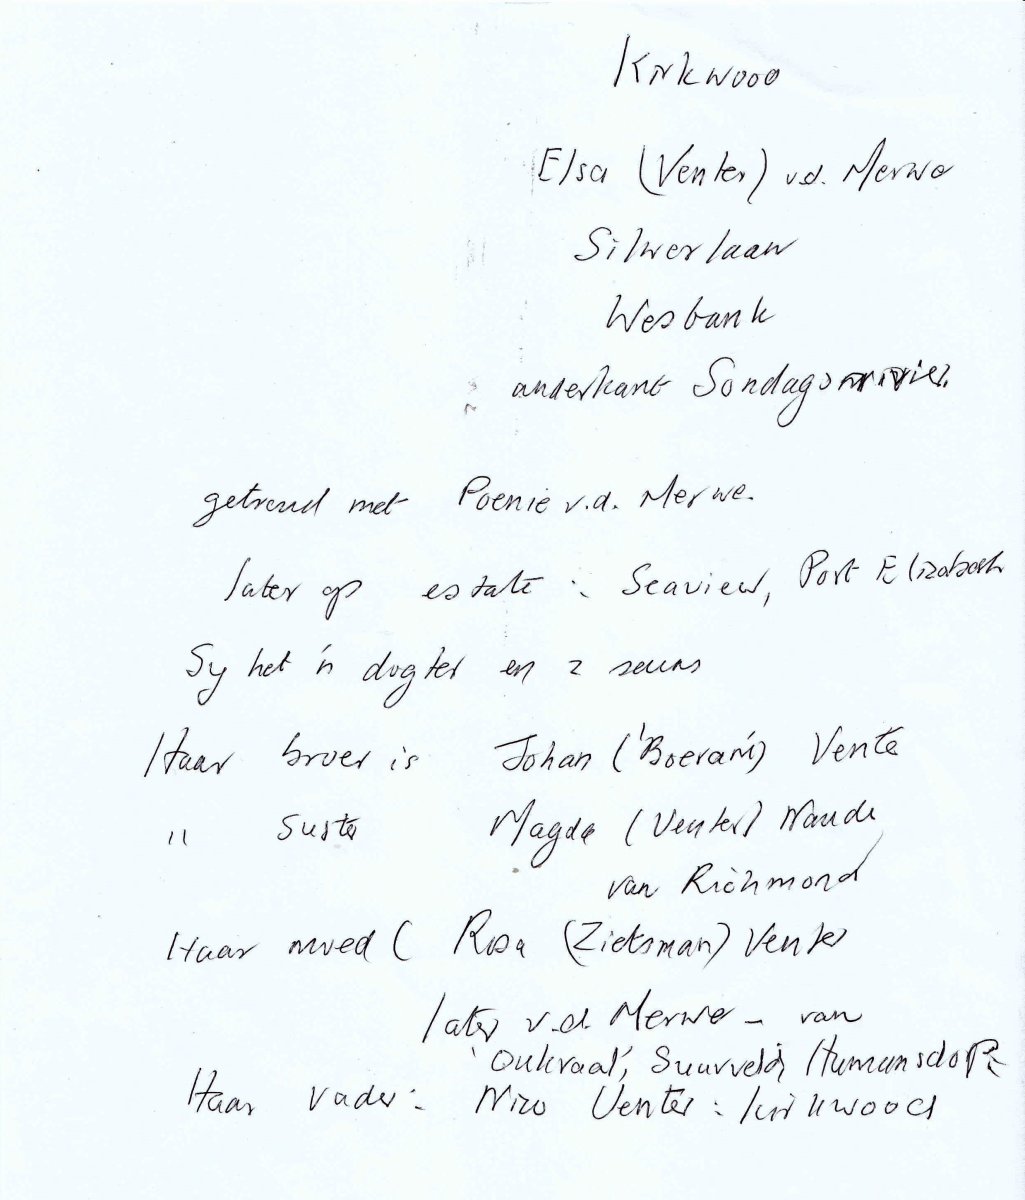 Kirkwood
Elsa (Venter) v.d. Merwe
Silwerlaan
Wesbank
anderkant Sondagsrivier.
getroud met Poenie v.d. Merwe.
later op estate : Seaview, Port Elizabeth
Sy het 'n dogter en 2 seuns
Haar broer is Johan ('Boeram') Venter
" Suster Magda (Venter) Naude
van Richmond
Haar moeder Rosa (Zietsman) Venter
later v.d. Merwe - van
'Oukraal', Suurveld, Humansdorp
Haar vader : Nico Venter : Kirkwood